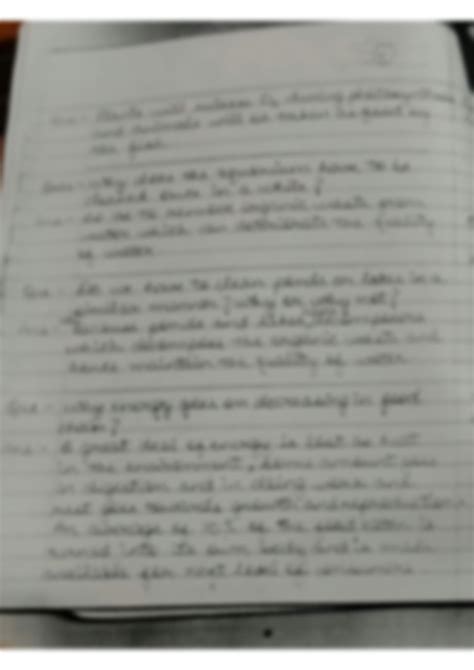 Ans - Plants will release O₂ during photosynthesis
and animals will
the fish.
Ques - Why does the aquarium have to be
cleaned once in a while?
Ans - So as to remove organic waste from
water which can deteriorate the quality
of water
Que - Do we have to clean ponds or lakes in a
similar manner? Why or why not?
Ans - ponds and lakes
which decompose the organic waste and
hence maintain the quality of water
Que - Why energy goes on decreasing in food
chain?
Ans - A great deal of energy is lost as heat
in the environment, some amount goes
in digestion and in doing work and
rest goes towards growth and reproduction
An average of 10% of the food eaten is
turned into its own body and is made
available for next level of consumers